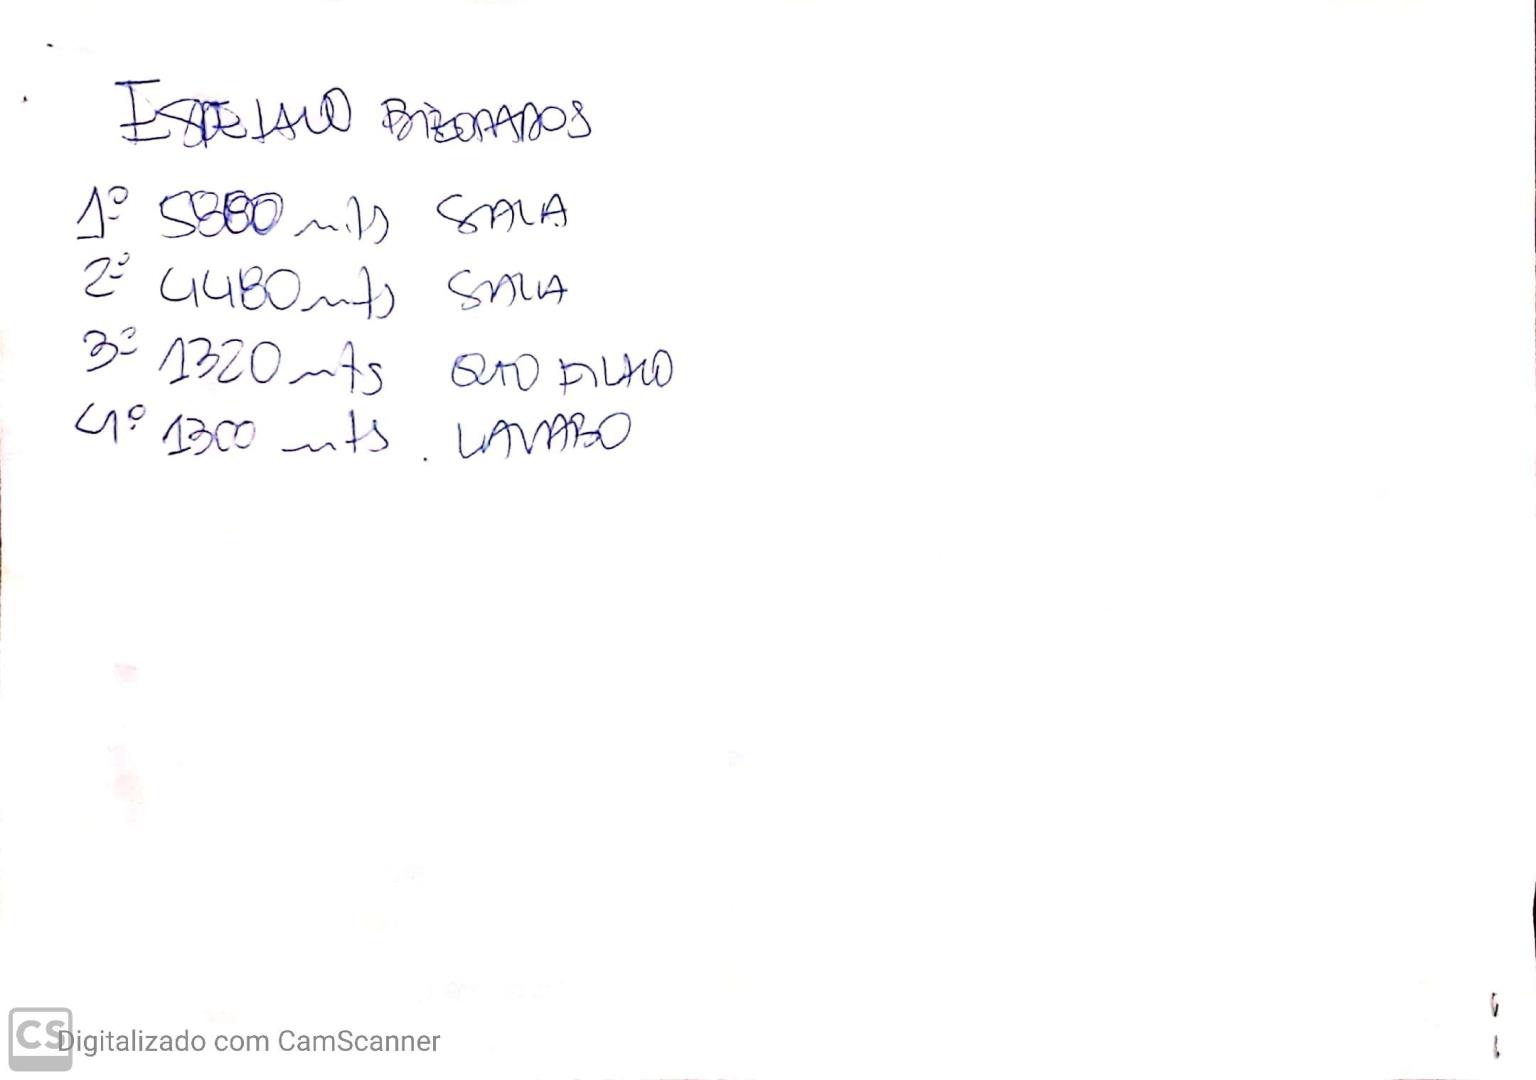 ESPELHO BIZOTADOS
1º 5880 mts SALA
2º 4480 mts SALA
3º 1320 mts QUTO FILHO
4º 1300 mts . LAVABO
CS Digitalizado com CamScanner